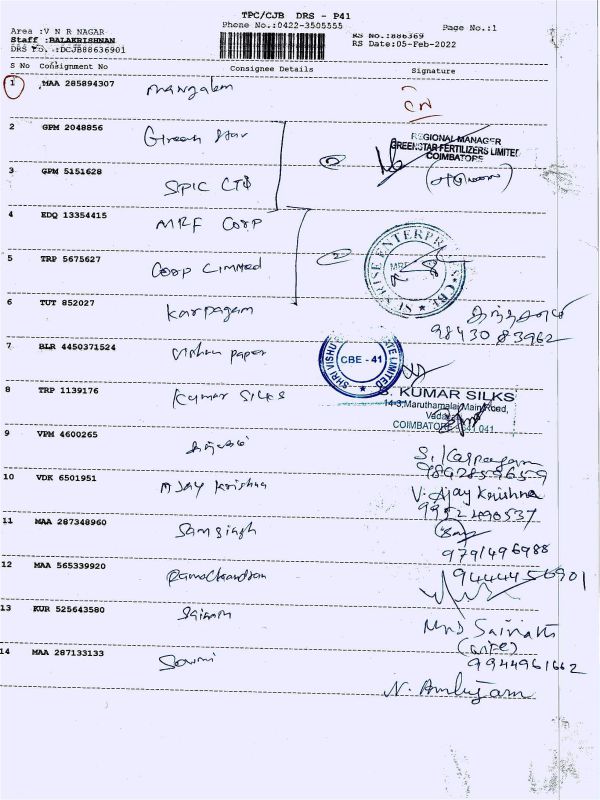 TPC/CJB DRS - P41
Phone No.:0422-3505555
Page No.:1
Area :V N R NAGAR
Staff :BALAKRISHNAN
DRS No. :DCJB88636901
RS No.:886369
RS Date:05-Feb-2022
S No Consignment No Consignee Details Signature
1 MAA 285894307 Mangalam
CN
2 GPM 2048856 Green Star
REGIONAL MANAGER
GREENSTAR FERTILIZERS LIMITED
COIMBATORE
3 GPM 5151628 SPIC LTD
4 EDQ 13354415 MRF Corp
5 TRP 5675627 Corp Limited
SUNRISE ENTERPRISES * CBE *
MRF
6 TUT 852027 Karpagam
9843083962
7 BLR 4450371524 Vishnu paper
SHRI VISHNU LIMITED
CBE - 41
8 TRP 1139176 Kumar SILKS
S. KUMAR SILKS
14-3,Maruthamalai Main Road,
COIMBATORE 641 041
9 VPM 4600265
S. Karpagam
9892859659
10 VDK 6501951 AJAY Krishna
V. Ajay Krishna
9952490537
11 MAA 287348960
9791496988
12 MAA 565339920 Ramachandran
9444456901
13 KUR 525643580 Sairam
Mrs Sainath
(wife)
9944961662
14 MAA 287133133 Sowmi
N. Ambujam